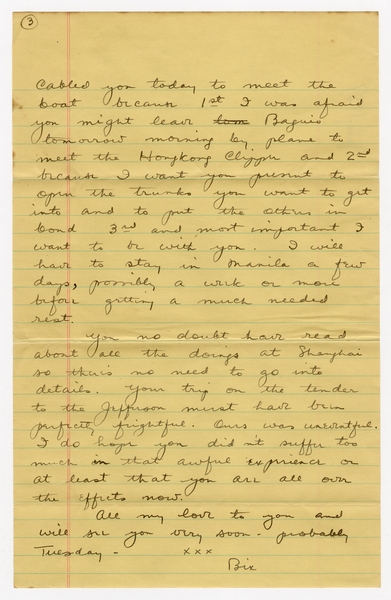 3
cabled you today to meet the
boat because 1st I was afraid
you might leave tom Baguio
tomorrow morning by plane to
meet the Hongkong Clipper and 2nd
because I want you present to
open the trunks you want to get
into and to put the others in
bond 3rd and most important I
want to be with you. I will
have to stay in Manila a few
days, possibly a week or more
before getting a much needed
rest.
You no doubt have read
about all the doings at Shanghai
so there's no need to go into
details. Your trip on the tender
to the Jefferson must have been
perfectly frightful. Ours was uneventful.
I do hope you didn't suffer too
much in that awful experience or
at least that you are all over
the effects now.
All my love to you and
will see you very soon - probably
Tuesday - xxx
Bix